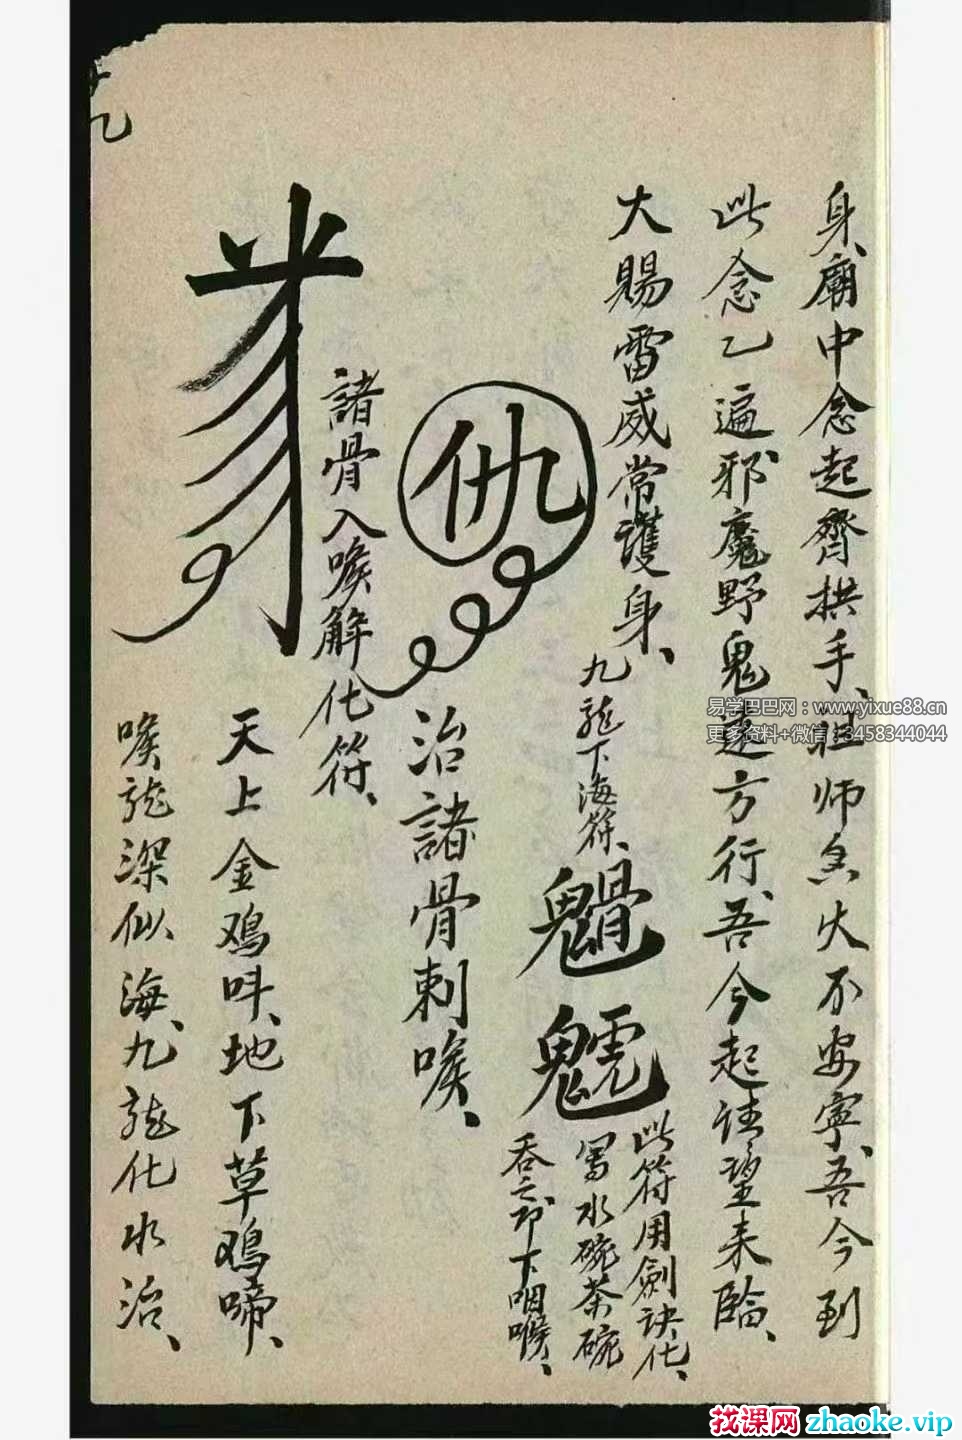 身、廟中念起齊拱手、祖师忽火不安寧、吾今到
此念乙遍邪魔野鬼遠方行、吾今起请望来臨、
大賜雷威常護身、
九龙下海符、
此符用劍诀化、
写水碗茶碗
吞之即下咽喉、
仇
治諸骨刺喉、
諸骨入喉解化符、
天上金鸡叫、地下草鸡啼、
喉龙深似海、九龙化水治、
易学巴巴网：www.yixue88.cn
更多资料+微信13458344044
找课网 zhaoke.vip